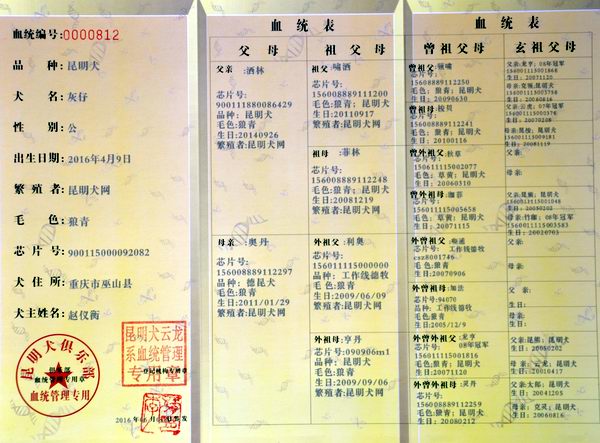 血统编号:0000812
品种:昆明犬
犬名:灰仔
性别:公
出生日期:2016年4月9日
繁殖者:昆明犬网
毛色:狼青
芯片号:900115000092082
犬住所:重庆市巫山县
犬主姓名:赵仪衡
昆明犬俱乐部
血统管理专用章
血统管理专用
昆明犬云龙
系血统管理
专用章
登记机构专用章
血统表
父母
祖父母
父亲:酒林
芯片号:
900111880086429
品种:昆明犬
毛色:狼青
生日:20140926
繁殖者:昆明犬网
母亲:奥丹
芯片号:
156008889112297
品种:德昆犬
毛色:狼青
生日:2011/01/29
繁殖者:昆明犬网
祖父:啸酒
芯片号:
156008889111200
毛色:狼青;昆明犬
生日:20110917
繁殖者:昆明犬网
祖母:菲林
芯片号:
156008889112248
毛色:狼青;昆明犬
生日:20081219
繁殖者:昆明犬网
外祖父:利奥
芯片号:
156011115000000
品种:工作线德牧
毛色:狼青
生日:2009/06/09
繁殖者:昆明犬网
外祖母:亨丹
芯片号:090906m1
毛色:狼青
生日:2009/09/06
繁殖者:昆明犬网
血统表
曾祖父母
玄祖父母
芯片号:
15608889112250
毛色:狼青;昆明犬
生日:20090630
芯片号:
15608889112241
毛色:狼青;昆明犬
生日:20100116
曾外祖父:秋草
芯片号:
156011115002077
毛色:草黄;昆明犬
生日:20060310
曾外祖母:珈菲
芯片号:
156011115005658
毛色:草黄;昆明犬
生日:20071115
外曾祖父:
芯片号:工作线德牧
csz8001746
毛色:狼青
生日:20070906
外曾祖母:加法
芯片号:94070
品种:工作线德牧
毛色:狼青
生日:2005/12/9
外曾外祖父:龙亨
芯片号: 08年冠军
156011115001868
毛色:狼青;昆明犬
生日:20071120
外曾外祖母:灵丹
芯片号:
156008889112259
毛色:狼青;昆明犬
生日:20080212
父亲:龙亨;08年冠军
156011115001868
生日:20071120
生日:20060816
父亲:云虎;07年冠军
生日:20070208
生日:20081119
父亲:
母亲:
生日:20050202
母亲:竹珈;08年冠军
156011115003585
生日:20020703
父亲:
母亲:
父亲:
生日:
母亲:
生日:
父亲:昆熊;昆明犬
生日:20050202
母亲:云龙;昆明犬
生日:20010417
父亲:太郎;昆明犬
生日:20041205
母亲:克灵;昆明犬
生日:20060816